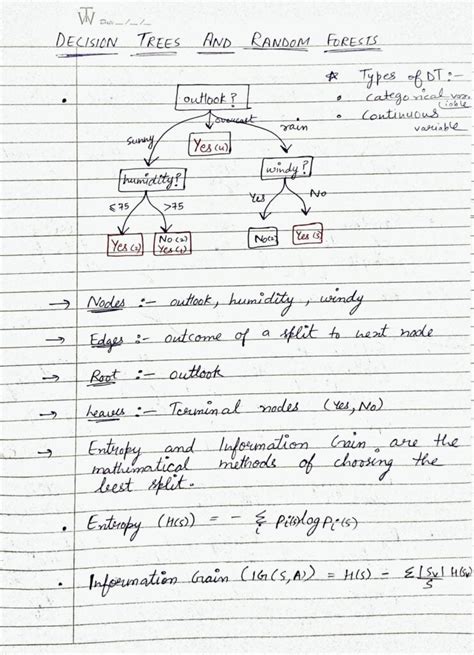 Date __/__/__
DECISION TREES AND RANDOM FORESTS
* Types of DT :-
• categorical variable
• Continuous variable
outlook?
sunny
overcast
rain
Yes(4)
humidity?
windy?
≤75
>75
Yes
No
Yes(2)
No(2)
Yes(1)
No(2)
Yes(3)
→ Nodes :- outlook, humidity, windy
→ Edges :- outcome of a split to next node
→ Root :- outlook
→ Leaves :- Terminal nodes (Yes, No)
→ Entropy and Information Gain are the
mathematical methods of choosing the
best split.
• Entropy (H(s)) = - Σ Pi(s) log Pi(s)
i
• Information Gain (IG(S,A)) = H(S) - Σ |Sv| H(Sv)
S